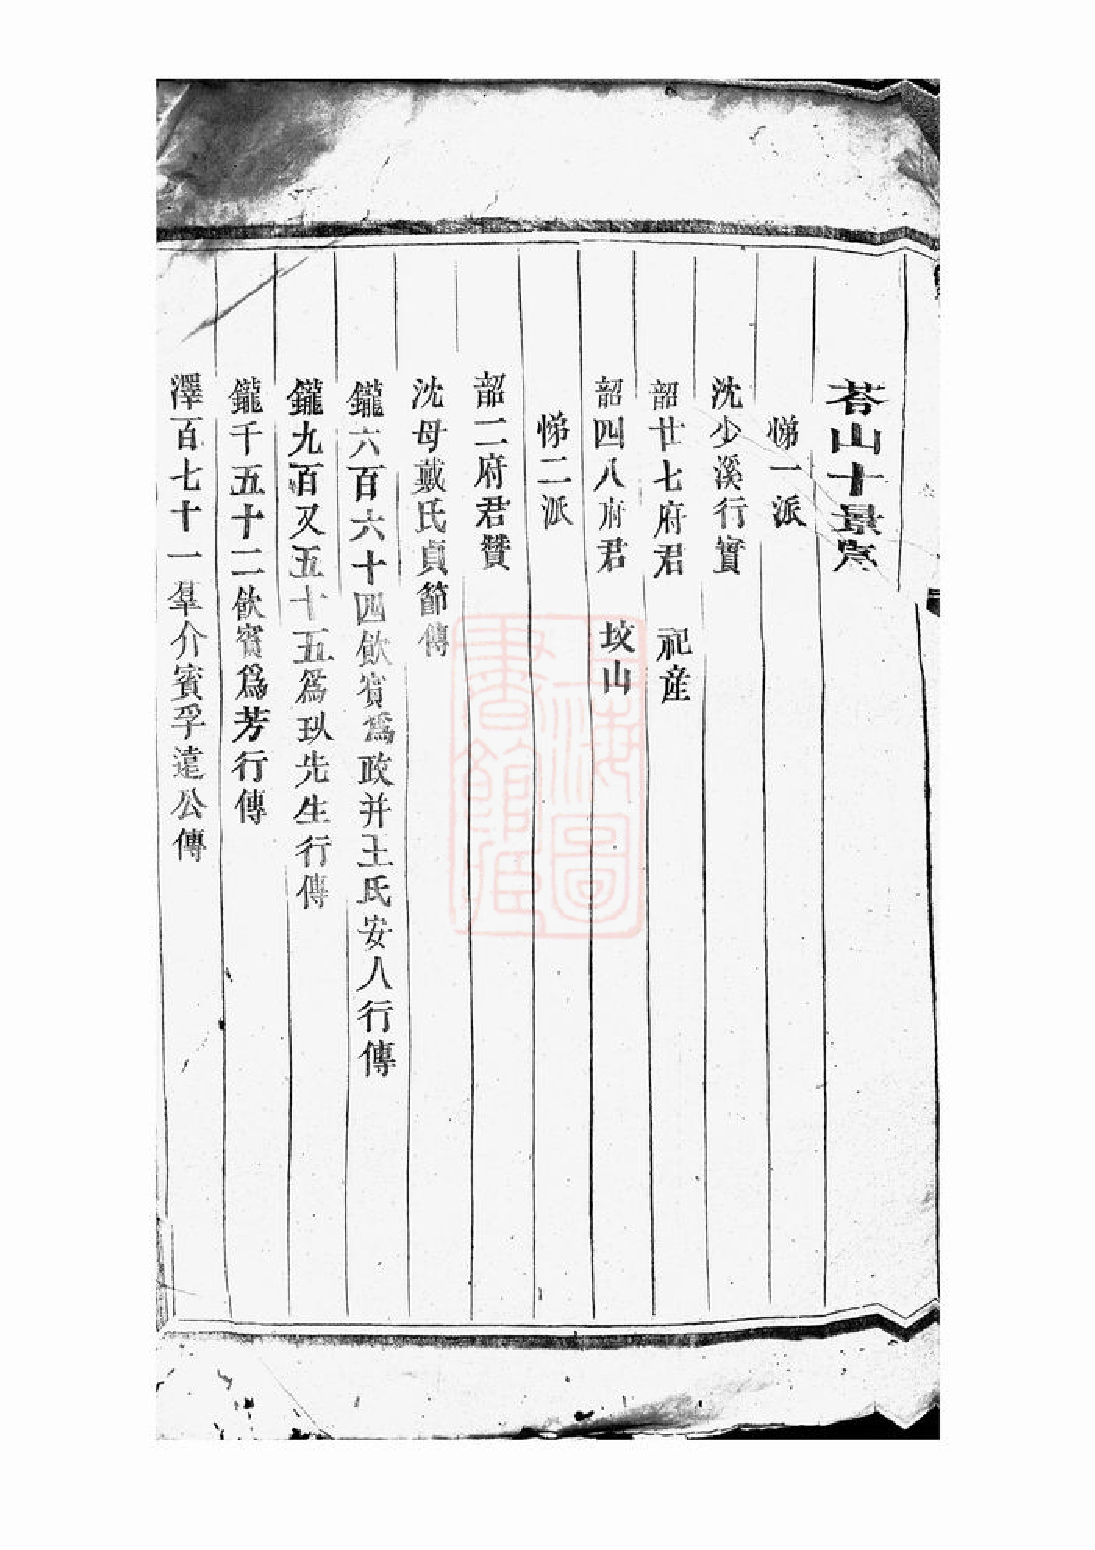 苔山十景
悌一派
沈少溪行實
韶廿七府君 祀産
韶四八府君 坟山
悌二派
韶二府君贊
沈母戴氏貞節傳
鑨六百六十四飲賓爲政并王氏安人行傳
鑨九百又五十五爲玖先生行傳
鑨千五十二飲賓爲芳行傳
澤百七十一羣介賓孚遠公傳
上海圖書館藏